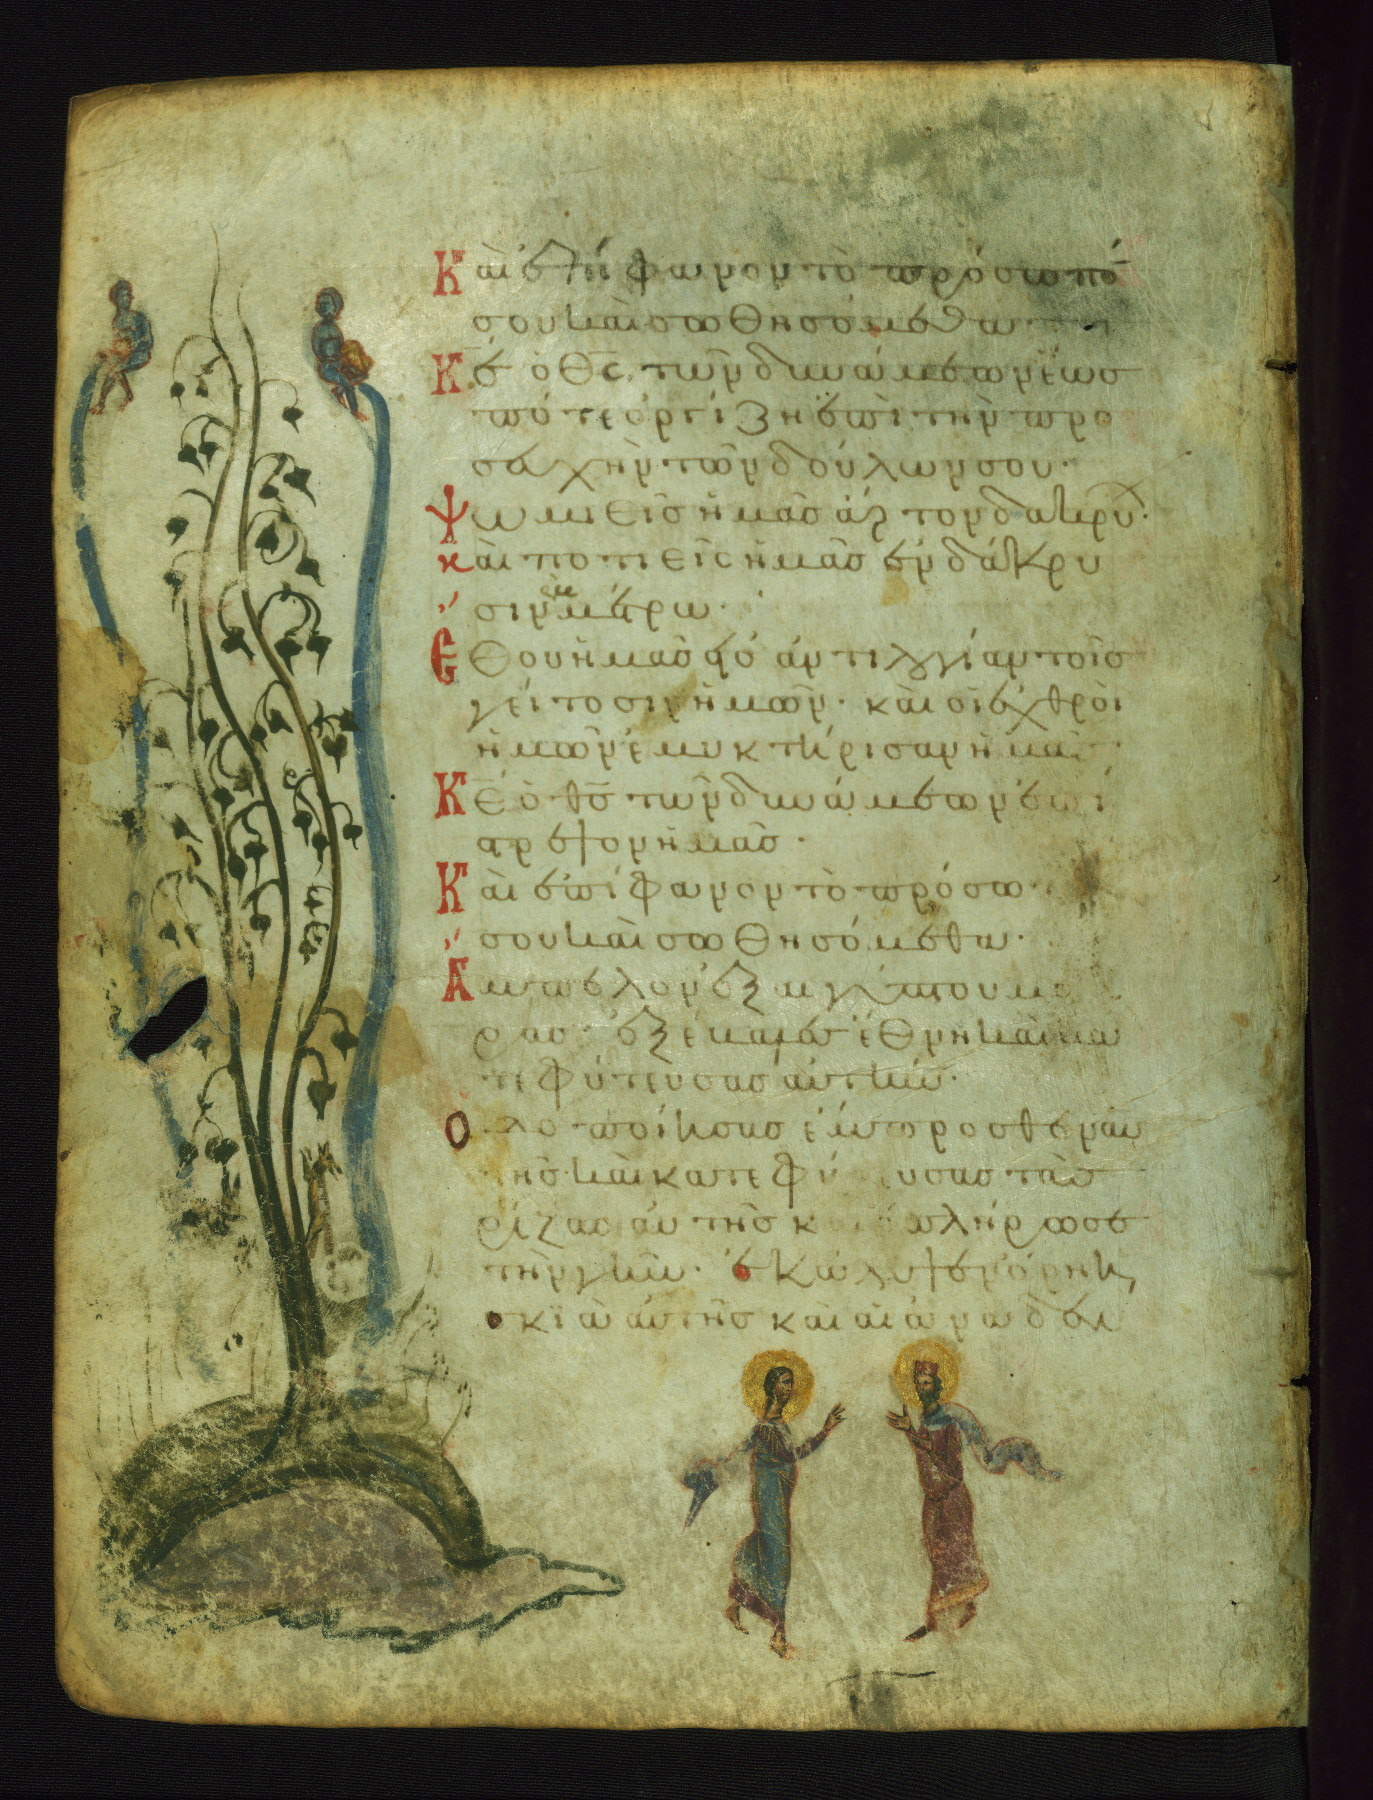 Καὶ ἐπίφανον τὸ πρόσωπόν
σου καὶ σωθησόμεθα
Κ̅ε̅ ὁ Θ̅ς̅ τῶν δυνάμεων ἕως
πότε ὀργίζη ἐπὶ τὴν προ
σευχὴν τῶν δούλων σου·
Ψωμιεῖς ἡμᾶς ἄρτον δακρύ·
καὶ ποτιεῖς ἡμᾶς ἐν δάκρυ
σιν ἐν μέτρω·
Ἔθου ἡμᾶς εἰς ἀντιλογίαν τοῖς
γείτοσιν ἡμῶν· καὶ οἱ ἐχθροὶ
ἡμῶν ἐμυκτήρισαν ἡμᾶς
Κ̅ε̅ ὁ θ̅ς̅ τῶν δυνάμεων ἐπί
στρεψον ἡμᾶς·
Καὶ ἐπίφανον τὸ πρόσω
σου καὶ σωθησόμεθα·
Ἄμπελον ἐξ αἰγύπτου με
ρας· ἐξέβαλες ἔθνη καὶ κα
τεφύτευσας αὐτήν·
Ὁδοποίησας ἔμπροσθεν αὐ
τῆς καὶ κατεφύτευσας τὰς
ρίζας αὐτῆς καὶ ἐπλήρωσε
τὴν γῆν· ἐκάλυψεν ὄρη ἡ
σκιὰ αὐτῆς καὶ αἱ ἀναδεν